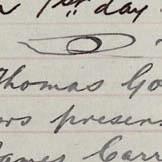 1st day
Thomas Go
rs present
James Carr